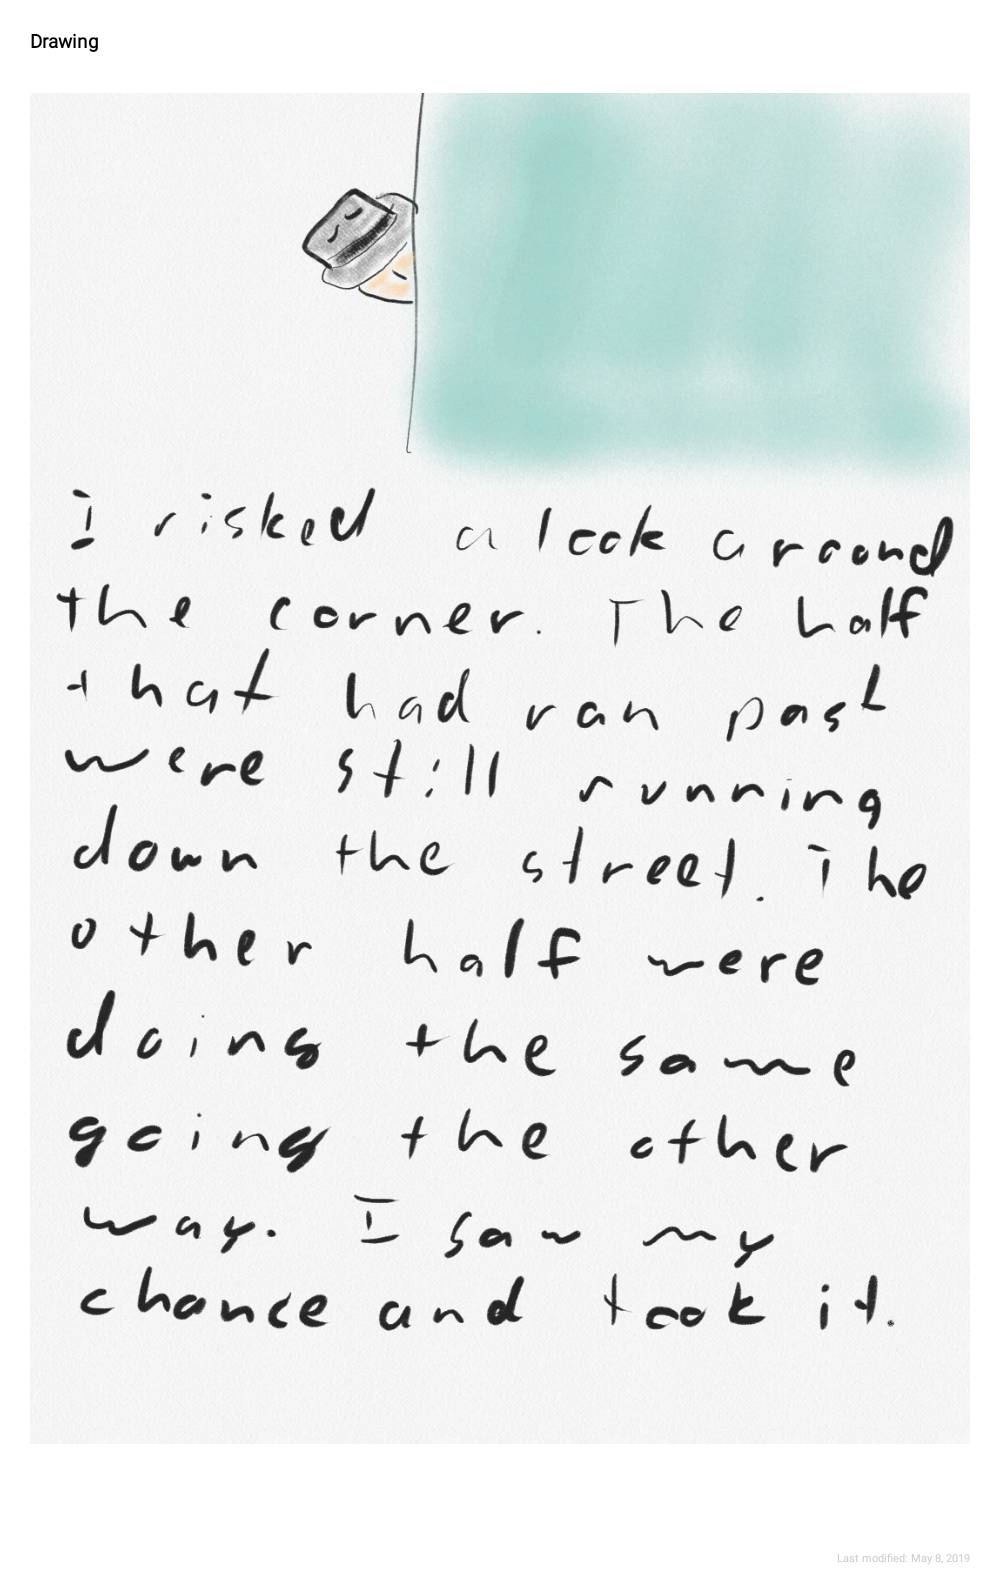 Drawing
I risked a look around
the corner. The half
that had ran past
were still running
down the street. The
other half were
doing the same
going the other
way. I saw my
chance and took it.
Last modified: May 8, 2019